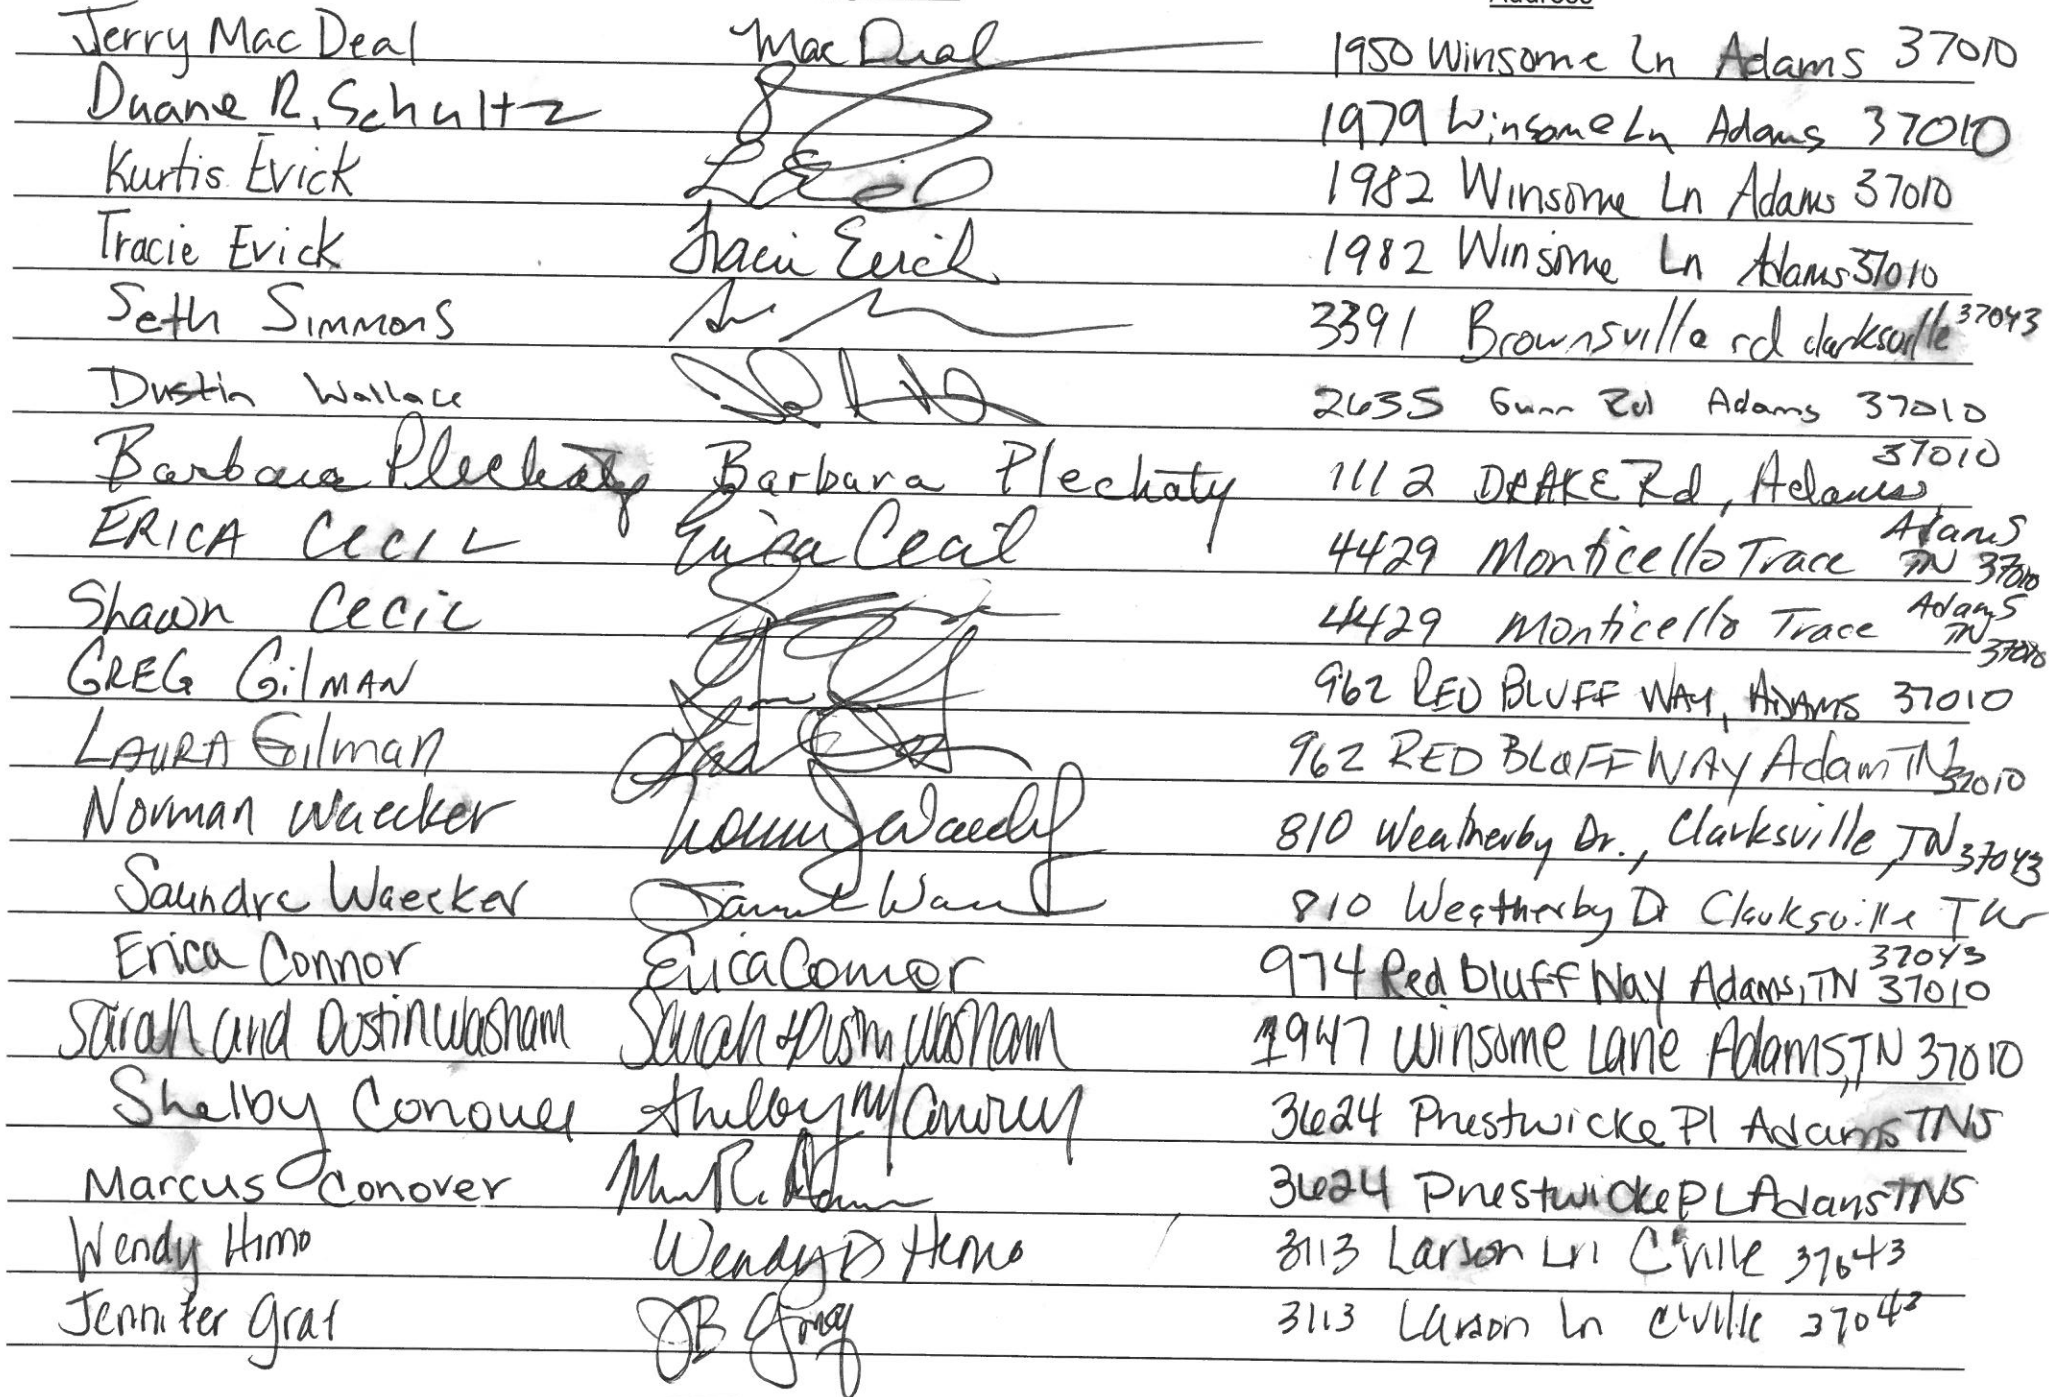 Address
Jerry Mac Deal Mac Deal 1950 Winsome Ln Adams 37010
Duane R. Schultz 1979 Winsome Ln Adams 37010
Kurtis Evick 1982 Winsome Ln Adams 37010
Tracie Evick Tracie Evick 1982 Winsome Ln Adams 37010
Seth Simmons 3391 Brownsville rd clarksville 37043
Dustin Wallace 2635 Gunn Rd Adams 37010
Barbara Plechaty Barbara Plechaty 1112 DRAKE Rd, Adams 37010
ERICA CECIL Erica Cecil 4429 Monticello Trace Adams TN 37010
Shawn Cecil 4429 Monticello Trace Adams TN 37010
GREG GilMAN 962 RED BLUFF WAY, ADAMS 37010
LAURA Gilman 962 RED BLUFF WAY Adam TN 37010
Norman Waecker 810 Weatherby Dr., Clarksville, TN 37043
Saundra Waecker 810 Weatherby Dr Clarksville TN 37043
Erica Connor Erica Connor 974 Red Bluff Way Adams, TN 37010
Sarah and Dustin Washam Sarah + Dustin Washam 1947 Winsome Lane Adams, TN 37010
Shelby Conover Shelby M Conover 3624 Prestwicke Pl Adams TN
Marcus Conover 3624 Prestwicke PL Adams TN
Wendy Himo Wendy D Himo 3113 Larson Ln C'ville 37043
Jennifer Gray JB Gray 3113 Larson Ln C'ville 37043